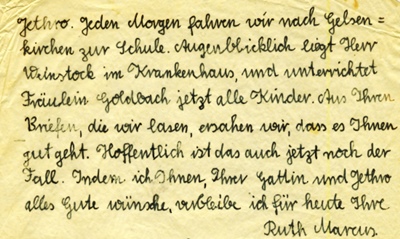 Jethro. Jeden Morgen fahren wir nach Gelsen=
kirchen zur Schule. Augenblicklich liegt Herr
Weinstock im Krankenhaus, und unterrichtet
Fräulein Goldbach jetzt alle Kinder. Aus Ihren
Briefen, die wir lasen, ersahen wir, dass es Ihnen
gut geht. Hoffentlich ist das auch jetzt noch der
Fall. Indem ich Ihnen, Ihrer Gattin und Jethro
alles Gute wünsche, verbleibe ich für heute Ihre
Ruth Marcus